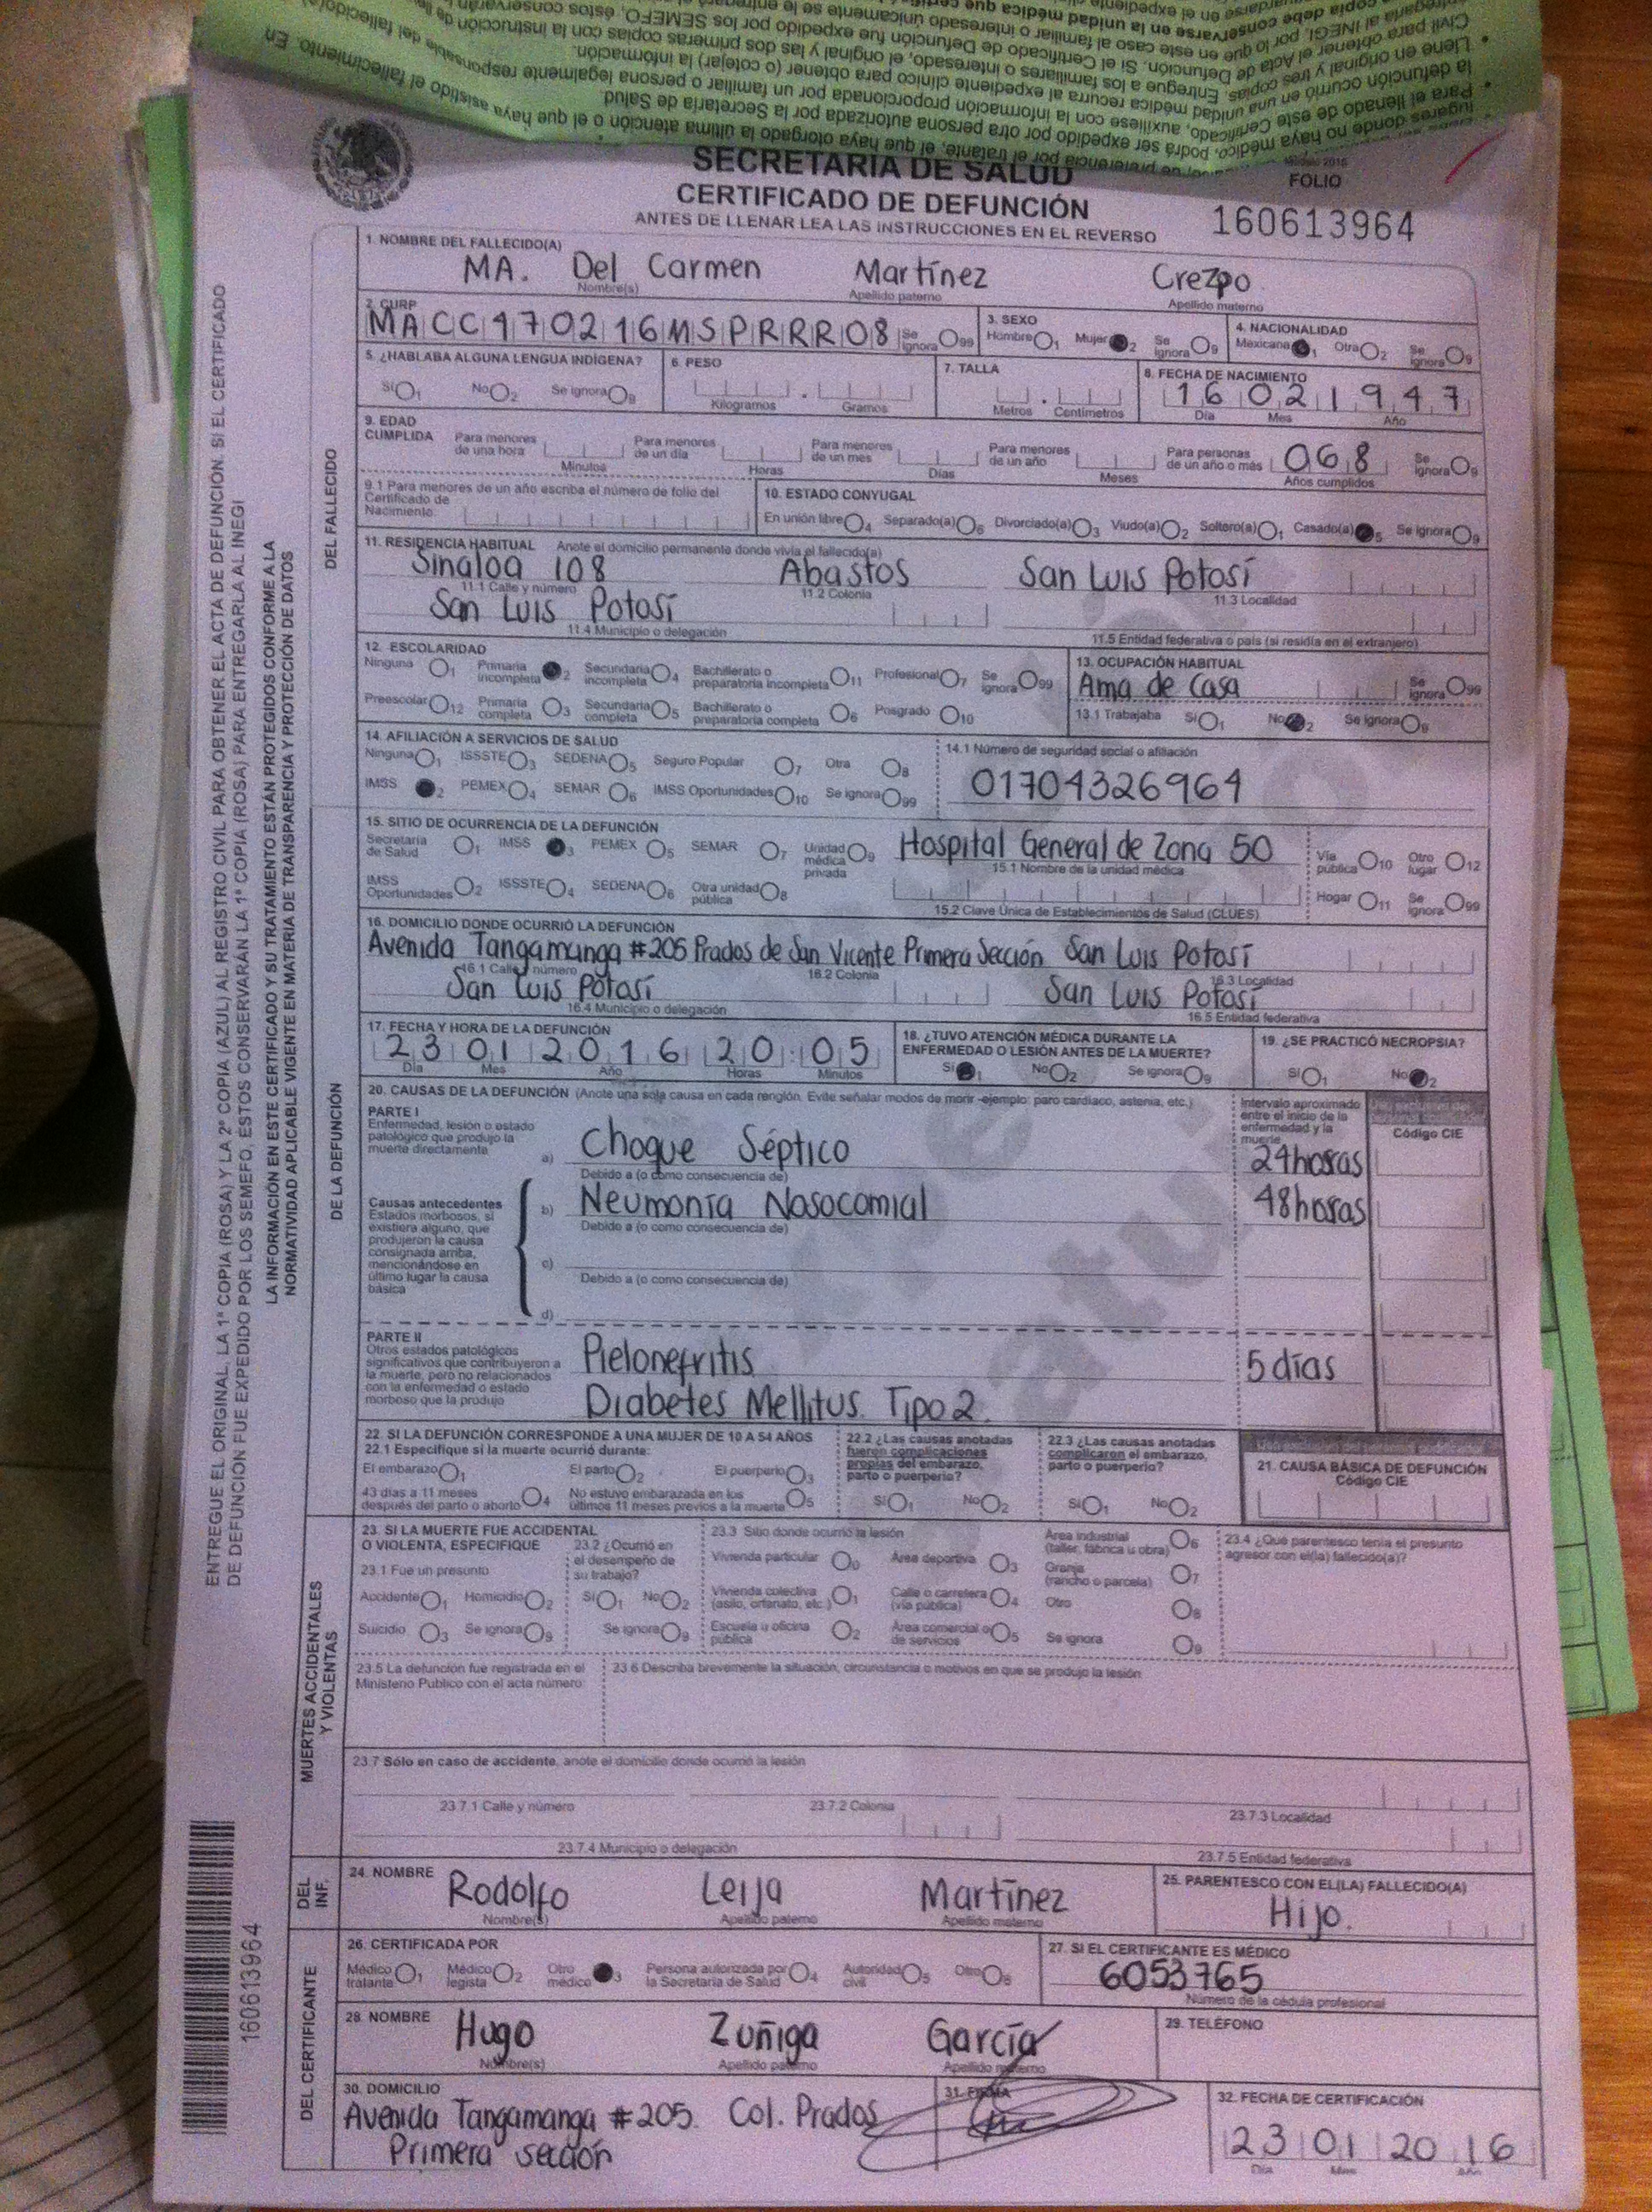 lugares donde no haya médico, podrá ser expedido por otra persona autorizada por la Secretaría de Salud.
Para el llenado de este Certificado, auxíliese con la información proporcionada por un familiar o persona legalmente responsable del fallecido(a)
la defunción ocurrió en una unidad médica recurra al expediente clínico para obtener (o cotejar) la información.
Llene en original y tres copias. Entregue a los familiares o interesado, el original y las dos primeras copias con la instrucción de
Civil para obtener el Acta de Defunción. Si el Certificado de Defunción fue expedido por los SEMEFO, éstos conservarán
SECRETARÍA DE SALUD
CERTIFICADO DE DEFUNCIÓN
ANTES DE LLENAR LEA LAS INSTRUCCIONES EN EL REVERSO
FOLIO
160613964
DEL FALLECIDO
1. NOMBRE DEL FALLECIDO(A)
MA. Del Carmen Martínez Crezpo
Nombre(s) Apellido paterno Apellido materno
2. CURP
MACC470216MSPRRR08 Se ignora 99
3. SEXO
Hombre 1 Mujer 2 Se ignora 9
4. NACIONALIDAD
Mexicana 1 Otra 2 Se ignora 9
5. ¿HABLABA ALGUNA LENGUA INDÍGENA?
Sí 1 No 2 Se ignora 9
6. PESO
Kilogramos Gramos
7. TALLA
Metros Centímetros
8. FECHA DE NACIMIENTO
16 02 1947
Día Mes Año
9. EDAD CUMPLIDA
Para menores de una hora Minutos
Para menores de un día Horas
Para menores de un mes Días
Para menores de un año Meses
Para personas de un año o más 068 Años cumplidos
Se ignora 9
9.1 Para menores de un año escriba el número de folio del Certificado de Nacimiento
10. ESTADO CONYUGAL
En unión libre 4 Separado(a) 6 Divorciado(a) 3 Viudo(a) 2 Soltero(a) 1 Casado(a) 5 Se ignora 9
11. RESIDENCIA HABITUAL Anote el domicilio permanente donde vivía el fallecido(a)
Sinaloa 108 Abastos San Luis Potosí
11.1 Calle y número 11.2 Colonia 11.3 Localidad
San Luis Potosí
11.4 Municipio o delegación 11.5 Entidad federativa o país (si residía en el extranjero)
12. ESCOLARIDAD
Ninguna 1 Primaria incompleta 2 Secundaria incompleta 4 Bachillerato o preparatoria incompleta 11 Profesional 7 Se ignora 99
Preescolar 12 Primaria completa 3 Secundaria completa 5 Bachillerato o preparatoria completa 6 Posgrado 10
13. OCUPACIÓN HABITUAL
Ama de Casa Se ignora 99
13.1 Trabajaba Sí 1 No 2 Se ignora 9
14. AFILIACIÓN A SERVICIOS DE SALUD
Ninguna 1 ISSSTE 3 SEDENA 5 Seguro Popular 7 Otra 8
IMSS 2 PEMEX 4 SEMAR 6 IMSS Oportunidades 10 Se ignora 99
14.1 Número de seguridad social o afiliación
01704326964
DE LA DEFUNCIÓN
15. SITIO DE OCURRENCIA DE LA DEFUNCIÓN
Secretaría de Salud 1 IMSS 3 PEMEX 5 SEMAR 7 Unidad médica privada 9
Hospital General de Zona 50
15.1 Nombre de la unidad médica
Vía pública 10 Otro lugar 12
IMSS Oportunidades 2 ISSSTE 4 SEDENA 6 Otra unidad pública 8
15.2 Clave Única de Establecimientos de Salud (CLUES)
Hogar 11 Se ignora 99
16. DOMICILIO DONDE OCURRIÓ LA DEFUNCIÓN
Avenida Tangamanga #205 Prados de San Vicente Primera Sección San Luis Potosí
16.1 Calle y número 16.2 Colonia 16.3 Localidad
San Luis Potosí San Luis Potosí
16.4 Municipio o delegación 16.5 Entidad federativa
17. FECHA Y HORA DE LA DEFUNCIÓN
23 01 2016 20:05
Día Mes Año Horas Minutos
18. ¿TUVO ATENCIÓN MÉDICA DURANTE LA ENFERMEDAD O LESIÓN ANTES DE LA MUERTE?
Sí 1 No 2 Se ignora 9
19. ¿SE PRACTICÓ NECROPSIA?
Sí 1 No 2
20. CAUSAS DE LA DEFUNCIÓN (Anote una sola causa en cada renglón. Evite señalar modos de morir -ejemplo: paro cardiaco, astenia, etc.)
Intervalo aproximado entre el inicio de la enfermedad y la muerte
Código CIE
PARTE I
Enfermedad, lesión o estado patológico que produjo la muerte directamente
a) Choque Séptico 24horas
Debido a (o como consecuencia de)
Causas antecedentes
Estados morbosos, si existiera alguno, que produjeron la causa consignada arriba, mencionándose en último lugar la causa básica
b) Neumonía Nosocomial 48horas
Debido a (o como consecuencia de)
c)
Debido a (o como consecuencia de)
d)
PARTE II
Otros estados patológicos significativos que contribuyeron a la muerte, pero no relacionados con la enfermedad o estado morboso que la produjo
Pielonefritis 5 días
Diabetes Mellitus Tipo 2.
22. SI LA DEFUNCIÓN CORRESPONDE A UNA MUJER DE 10 A 54 AÑOS
22.1 Especifique si la muerte ocurrió durante:
El embarazo 1 El parto 2 El puerperio 3
43 días a 11 meses después del parto o aborto 4 No estuvo embarazada en los últimos 11 meses previos a la muerte 5
22.2 ¿Las causas anotadas fueron complicaciones propias del embarazo, parto o puerperio?
Sí 1 No 2
22.3 ¿Las causas anotadas complicaron el embarazo, parto o puerperio?
Sí 1 No 2
21. CAUSA BÁSICA DE DEFUNCIÓN
Código CIE
MUERTES ACCIDENTALES Y VIOLENTAS
23. SI LA MUERTE FUE ACCIDENTAL O VIOLENTA, ESPECIFIQUE
23.1 Fue un presunto
Accidente 1 Homicidio 2
Suicidio 3 Se ignora 9
23.2 ¿Ocurrió en el desempeño de su trabajo?
Sí 1 No 2
Se ignora 9
23.3 Sitio donde ocurrió la lesión
Vivienda particular 0 Área deportiva 3 Área industrial (taller, fábrica u obra) 6
Vivienda colectiva (asilo, orfanato, etc.) 1 Calle o carretera (vía pública) 4 Granja (rancho o parcela) 7
Escuela u oficina pública 2 Área comercial o de servicios 5 Otro 8
Se ignora 9
23.4 ¿Qué parentesco tenía el presunto agresor con el(la) fallecido(a)?
23.5 La defunción fue registrada en el Ministerio Público con el acta número:
23.6 Describa brevemente la situación, circunstancia o motivos en que se produjo la lesión
23.7 Sólo en caso de accidente, anote el domicilio donde ocurrió la lesión
23.7.1 Calle y número 23.7.2 Colonia 23.7.3 Localidad
23.7.4 Municipio o delegación 23.7.5 Entidad federativa
DEL INF.
24. NOMBRE
Rodolfo Leija Martínez
Nombre(s) Apellido paterno Apellido materno
25. PARENTESCO CON EL(LA) FALLECIDO(A)
Hijo.
DEL CERTIFICANTE
26. CERTIFICADA POR
Médico tratante 1 Médico legista 2 Otro médico 3 Persona autorizada por la Secretaría de Salud 4 Autoridad civil 5 Otro 8
27. SI EL CERTIFICANTE ES MÉDICO
6053765
Número de la cédula profesional
28. NOMBRE
Hugo Zuñiga García
Nombre(s) Apellido paterno Apellido materno
29. TELÉFONO
30. DOMICILIO
Avenida Tangamanga #205. Col. Prados
Primera sección
31. FIRMA
32. FECHA DE CERTIFICACIÓN
23 01 2016
Día Mes Año
ENTREGUE EL ORIGINAL, LA 1ª COPIA (ROSA) Y LA 2ª COPIA (AZUL) AL REGISTRO CIVIL PARA OBTENER EL ACTA DE DEFUNCIÓN. SI EL CERTIFICADO
DE DEFUNCIÓN FUE EXPEDIDO POR LOS SEMEFO, ÉSTOS CONSERVARÁN LA 1ª COPIA (ROSA) PARA ENTREGARLA AL INEGI
LA INFORMACIÓN EN ESTE CERTIFICADO Y SU TRATAMIENTO ESTÁN PROTEGIDOS CONFORME A LA
NORMATIVIDAD APLICABLE VIGENTE EN MATERIA DE TRANSPARENCIA Y PROTECCIÓN DE DATOS
160613964